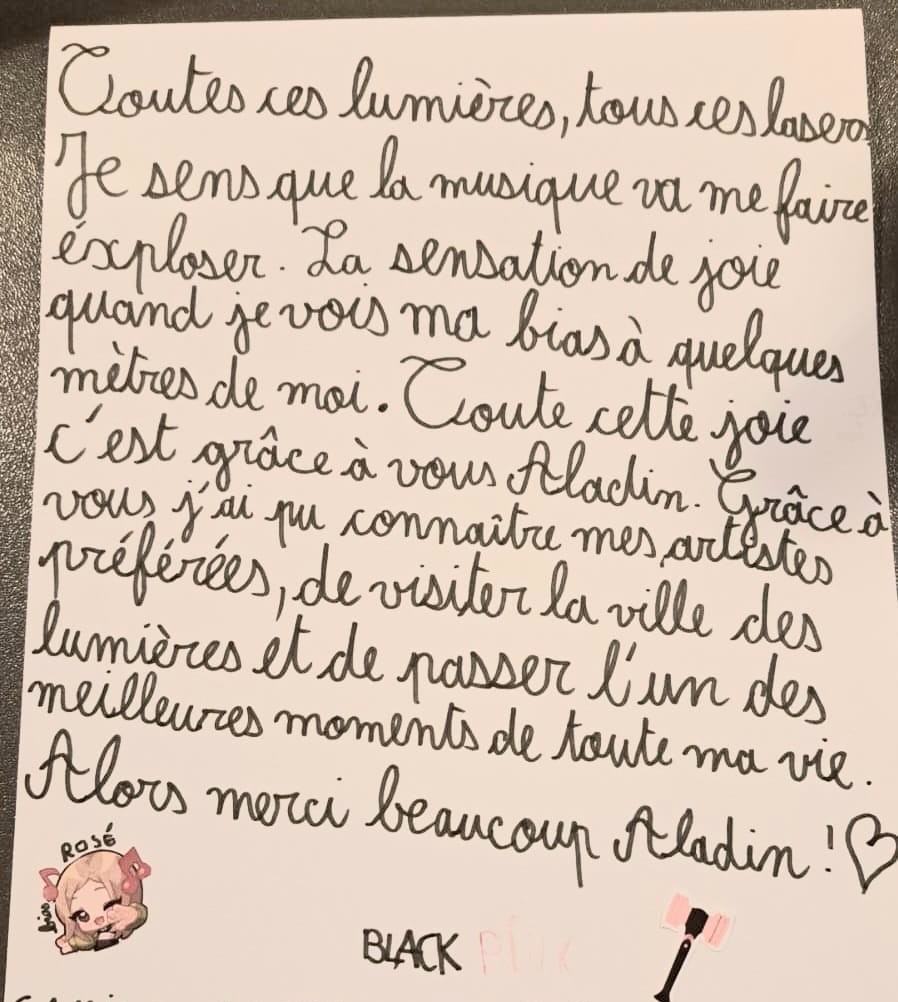 Toutes ces lumières, tous ces lasers
Je sens que la musique va me faire
éxploser. La sensation de joie
quand je vois ma bias à quelques
mètres de moi. Toute cette joie
c'est grâce à vous Aladin. Grâce à
vous j'ai pu connaître mes artistes
préférées, de visiter la ville des
lumières et de passer l'un des
meilleures moments de toute ma vie.
Alors merci beaucoup Aladin ! ♡
ROSÉ
bias
BLACK PINK